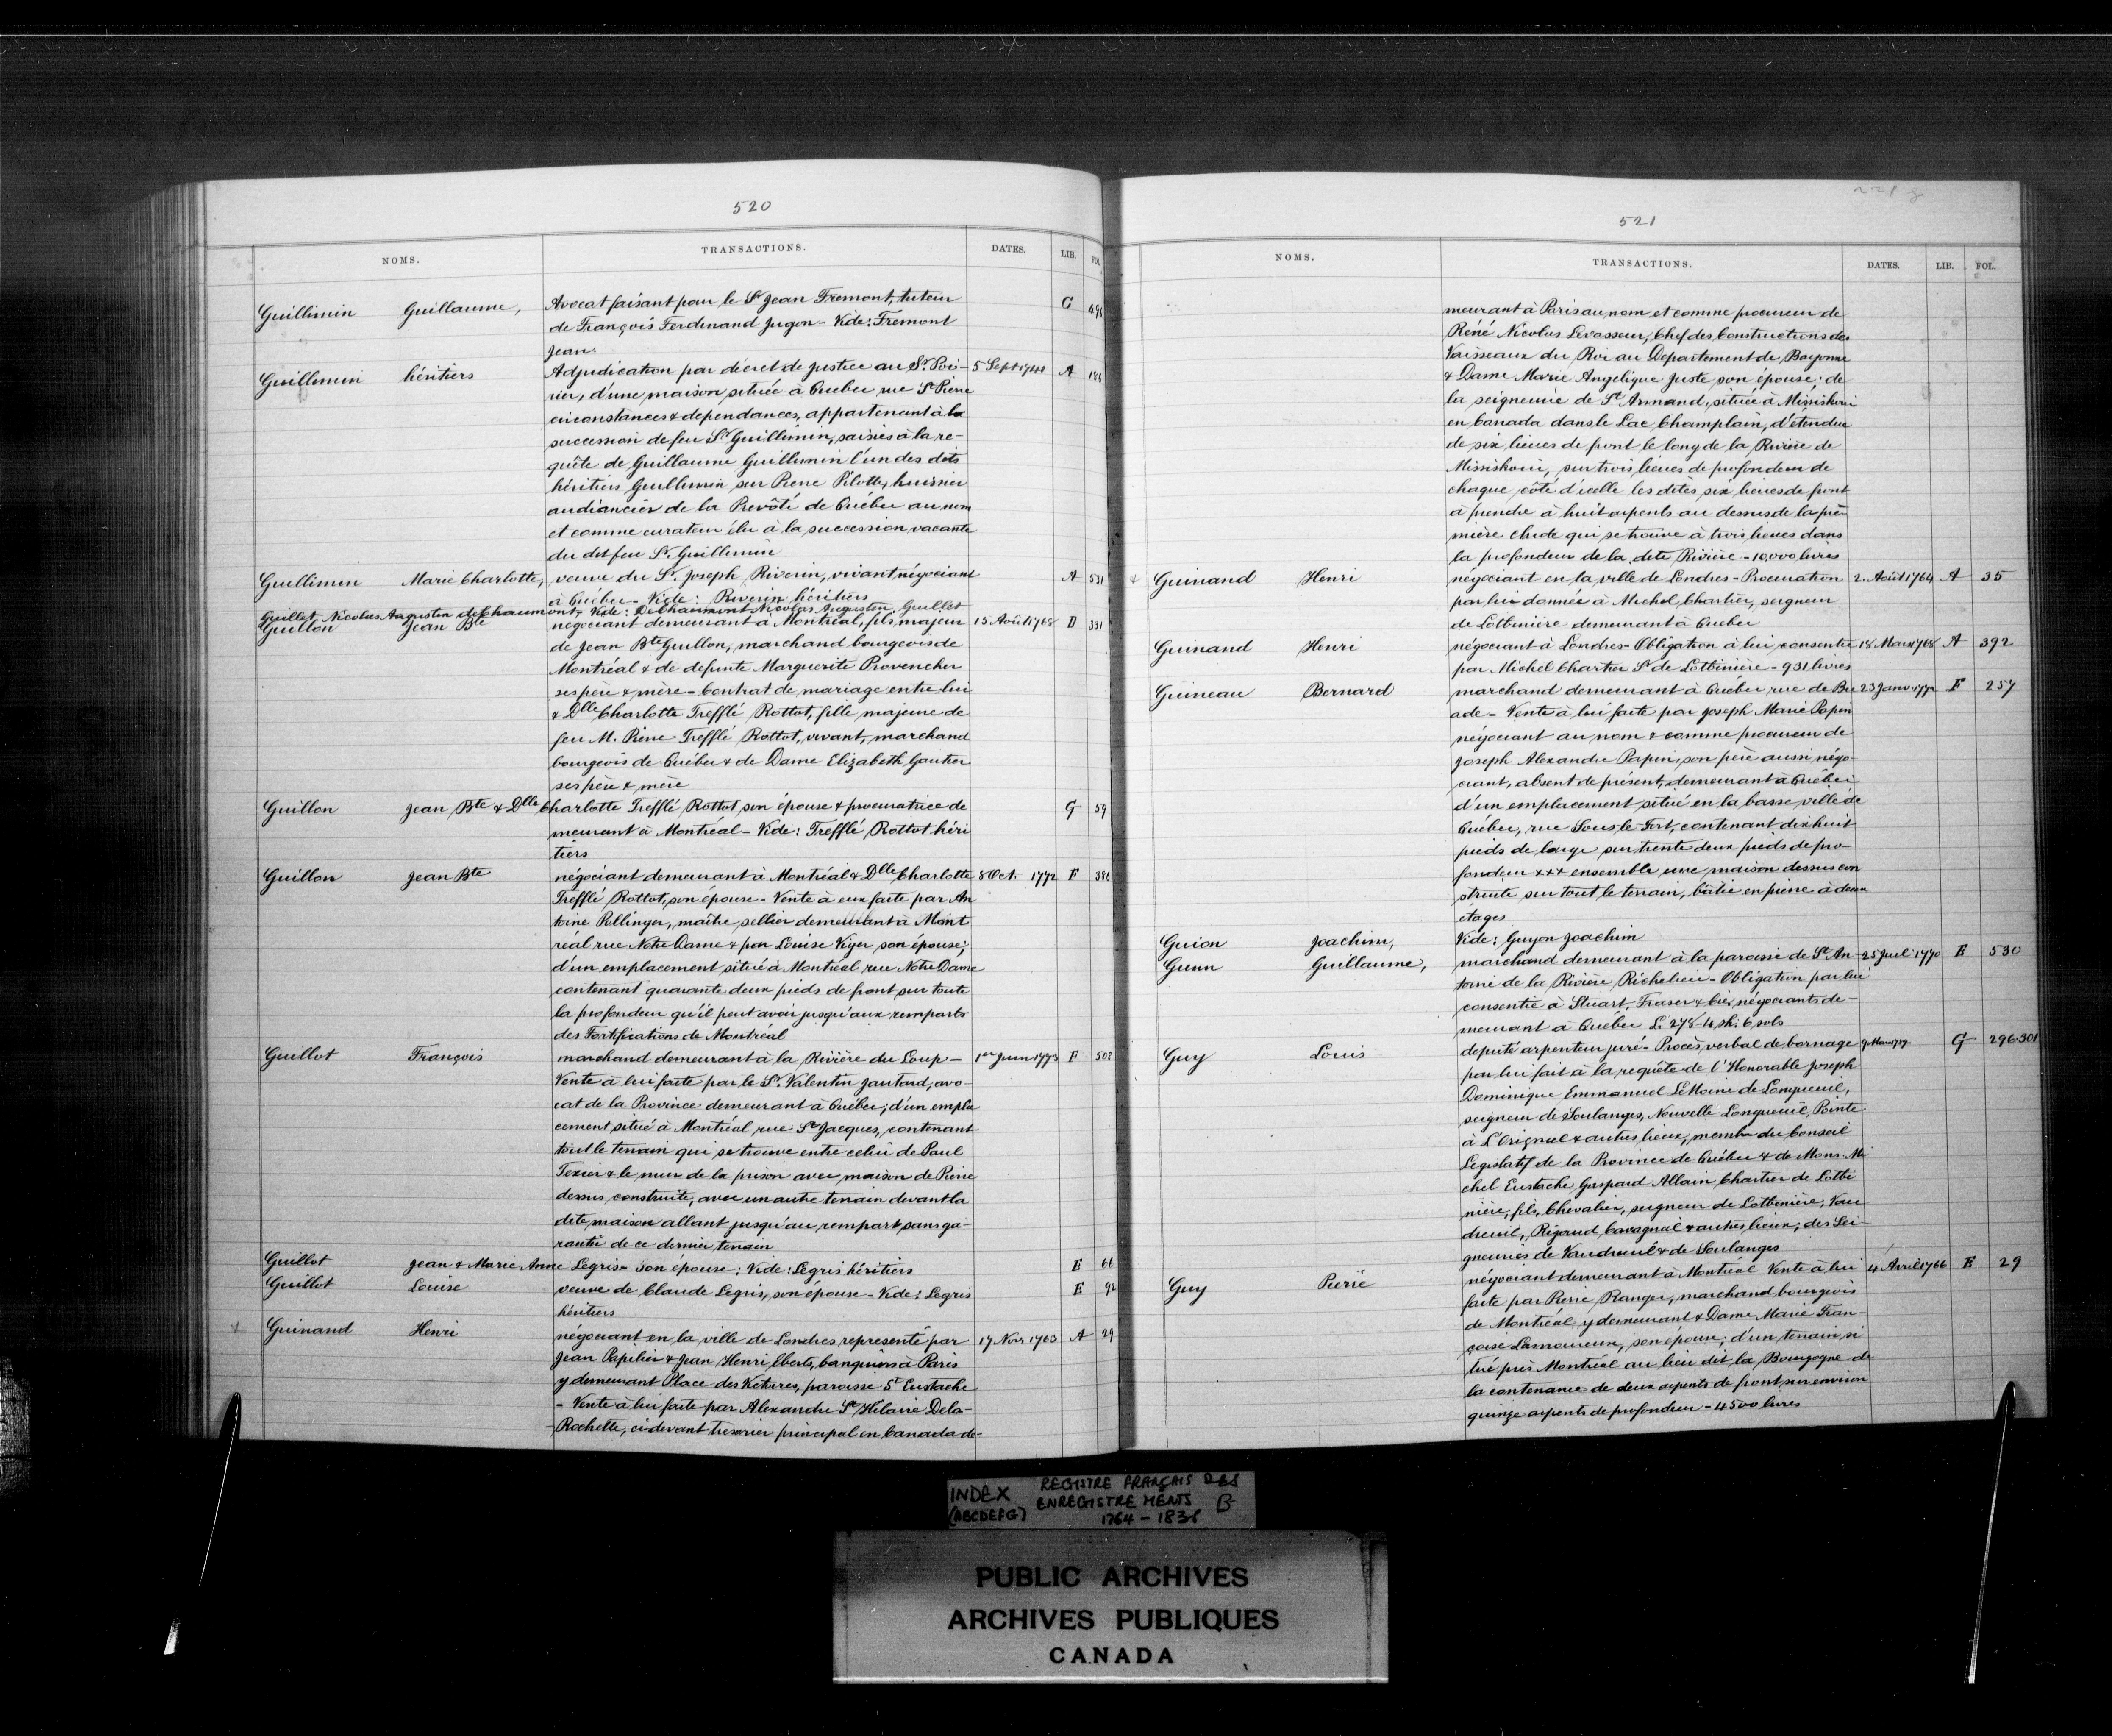 520
NOMS. TRANSACTIONS. DATES. LIB. FOL.
Guillimin Guillaume, Avocat faisant pour le Sr Jean Fremont, tuteur G 496
de François Ferdinand Jugon - Vide: Fremont
Jean
Guillimin héritiers Adjudication par décret de justice au Sr. Poi- 5 Sept 1741 A
rier, d'une maison située à Quebec rue St Pierre
circonstances & dependances, appartenant à la
succession de feu Sr Guillimin, saisies à la re-
quête de Guillaume Guillimin l'un des dits
héritiers Guillimin sur Pierre Pilotte, huissier
audiancier de la Prevôté de Québec au nom
et comme curateur élu à la succession vacante
du dit feu Sr. Guillimin
Guillimin Marie Charlotte, veuve du Sr. Joseph Riverin, vivant négociant A 531
à Québec - Vide: Riverin héritiers
Guillet Nicolas Augustin de Chaumont, Vide: DeChaumont Nicolas Augustin Guillet
Guillon Jean Bte négociant demeurant à Montréal, fils majeur 15 Août 1768 D 331
de Jean Bte Guillon, marchand bourgeois de
Montréal & de defunte Marguerite Provencher
ses père & mère - Contrat de mariage entre lui
& Dlle Charlotte Trefflé Rottot, fille majeure de
feu M. Pierre Trefflé Rottot, vivant, marchand
bourgeois de Québec & de Dame Elizabeth Gautier
ses père & mère
Guillon Jean Bte & Dlle Charlotte Trefflé Rottot son épouse & procuratrice de G 59
meurant à Montréal - Vide: Trefflé Rottot héri
tiers
Guillon Jean Bte négociant demeurant à Montréal & Dlle Charlotte 8 Oct. 1772 F 386
Trefflé Rottot, son épouse - Vente à eux faite par An
toine Pellinger, maître sellier demeurant à Mont
réal rue Notre Dame & par Louise Viger son épouse;
d'un emplacement situé à Montréal rue Notre Dame
contenant quarante deux pieds de front sur toute
la profondeur qu'il peut avoir jusqu'aux remparts
des Fortifications de Montréal
Guillot François marchand demeurant à la Rivière du Loup - 1er Juin 1773 F 508
Vente à lui faite par le Sr. Valentin Jautard, avo-
cat de la Province demeurant à Québec; d'un empla
cement situé à Montréal rue St Jacques, contenant
tout le terrain qui se trouve entre celui de Paul
Texier & le mur de la prison avec maison de Pierre
dessus construite, avec un autre terrain devant la
dite maison allant jusqu'au rempart sans ga-
rantir de ce dernier terrain
Guillot Jean & Marie Anne Legris son épouse: Vide: Legris héritiers E 66
Guillot Louise veuve de Claude Legris, son épouse - Vide: Legris E 92
héritiers
Guinand Henri négociant en la ville de Londres, représenté par 17 Nov. 1763 A 29
Jean Papilier & Jean Henri Eberts, banquiers à Paris
y demeurant Place des Victoires, paroisse St Eustache
- Vente à lui faite par Alexandre St Hilaire Dela-
Rochette, ci-devant tresorier principal en Canada de-
521
NOMS. TRANSACTIONS. DATES. LIB. FOL.
meurant à Paris au nom et comme procureur de
Réné Nicolas Levasseur, Chef des Constructions des
Vaisseaux du Roi au Departement de Bayonne
& Dame Marie Angelique Juste son épouse: de
la seigneurie de St Armand, située à Missiskoui
en Canada dans le Lac Champlain, d'étendue
de six lieues de front le long de la Rivière de
Missiskoui, sur trois lieues de profondeur de
chaque côté d'icelle les dites six lieues de front
à prendre à huit arpents au dessus de la pre
mière chute qui se trouve à trois lieues dans
la profondeur de la dite Rivière - 10,000 livres
Guinand Henri négociant en la ville de Londres - Procuration 2. Août 1764 A 35
par lui donnée à Michel Chartier, seigneur
de Lotbinière demeurant à Quebec
Guinand Henri négociant à Londres - Obligation à lui consentie 18 Mars 1768 A 392
par Michel Chartier Sr de Lotbinière - 931 livres
Guineau Bernard marchand demeurant à Québec, rue de Bu 23 Janv 1772 F 257
ade - Vente à lui faite par Joseph Marie Papin
négociant au nom & comme procureur de
Joseph Alexandre Papin, son père aussi négo-
ciant, absent de présent, demeurant à Québec
d'un emplacement situé en la basse ville de
Québec, rue Sous le Fort, contenant dix huit
pieds de large sur trente deux pieds de pro-
fondeur xxx ensemble une maison dessus con
struite sur tout le terrain, bâtie en pierre à deux
etages
Guion Joachim, Vide: Guyon Joachim
Gunn Guillaume, marchand demeurant à la paroisse de St. An- 25 Juil 1770 E 530
toine de la Rivière Richelieu - Obligation par lui
consentie à Stuart, Fraser & Cie, négociants de-
meurant à Québec L. 278-14 sh: 6 sols
Guy Louis député arpenteur juré - Procès verbal de bornage G 296-301
par lui fait à la requête de l'Honorable Joseph
Dominique Emmanuel LeMoine de Longueuil,
seigneur de Soulanges, Nouvelle Longueuil, Pointe
à L'Orignal & autres lieux, membre du Conseil
Legislatif de la Province de Québec & de Mons. Mi
chel Eustache Gaspard Allain Chartier de Lotbi
nière, fils, Chevalier, seigneur de Lotbinière, Vau
dreuil, Rigaud, Cavagnal & autres lieux; des Sei-
gneuries de Vaudreuil & de Soulanges
Guy Pierre négociant demeurant à Montréal Vente à lui 14 Avril 1766 E 29
faite par Pierre Ranger, marchand bourgeois
de Montréal y demeurant & Dame Marie Fran-
çoise Lamoureux, son épouse; d'un terrain si
tué près Montréal au lieu dit la Bourgogne de
la contenance de deux arpents de front sur environ
quinze arpents de profondeur - 4500 livres
INDEX (ABCDEFG) REGISTRE FRANÇAIS DES
ENREGISTREMENTS B
1764 - 1838
PUBLIC ARCHIVES
ARCHIVES PUBLIQUES
CANADA